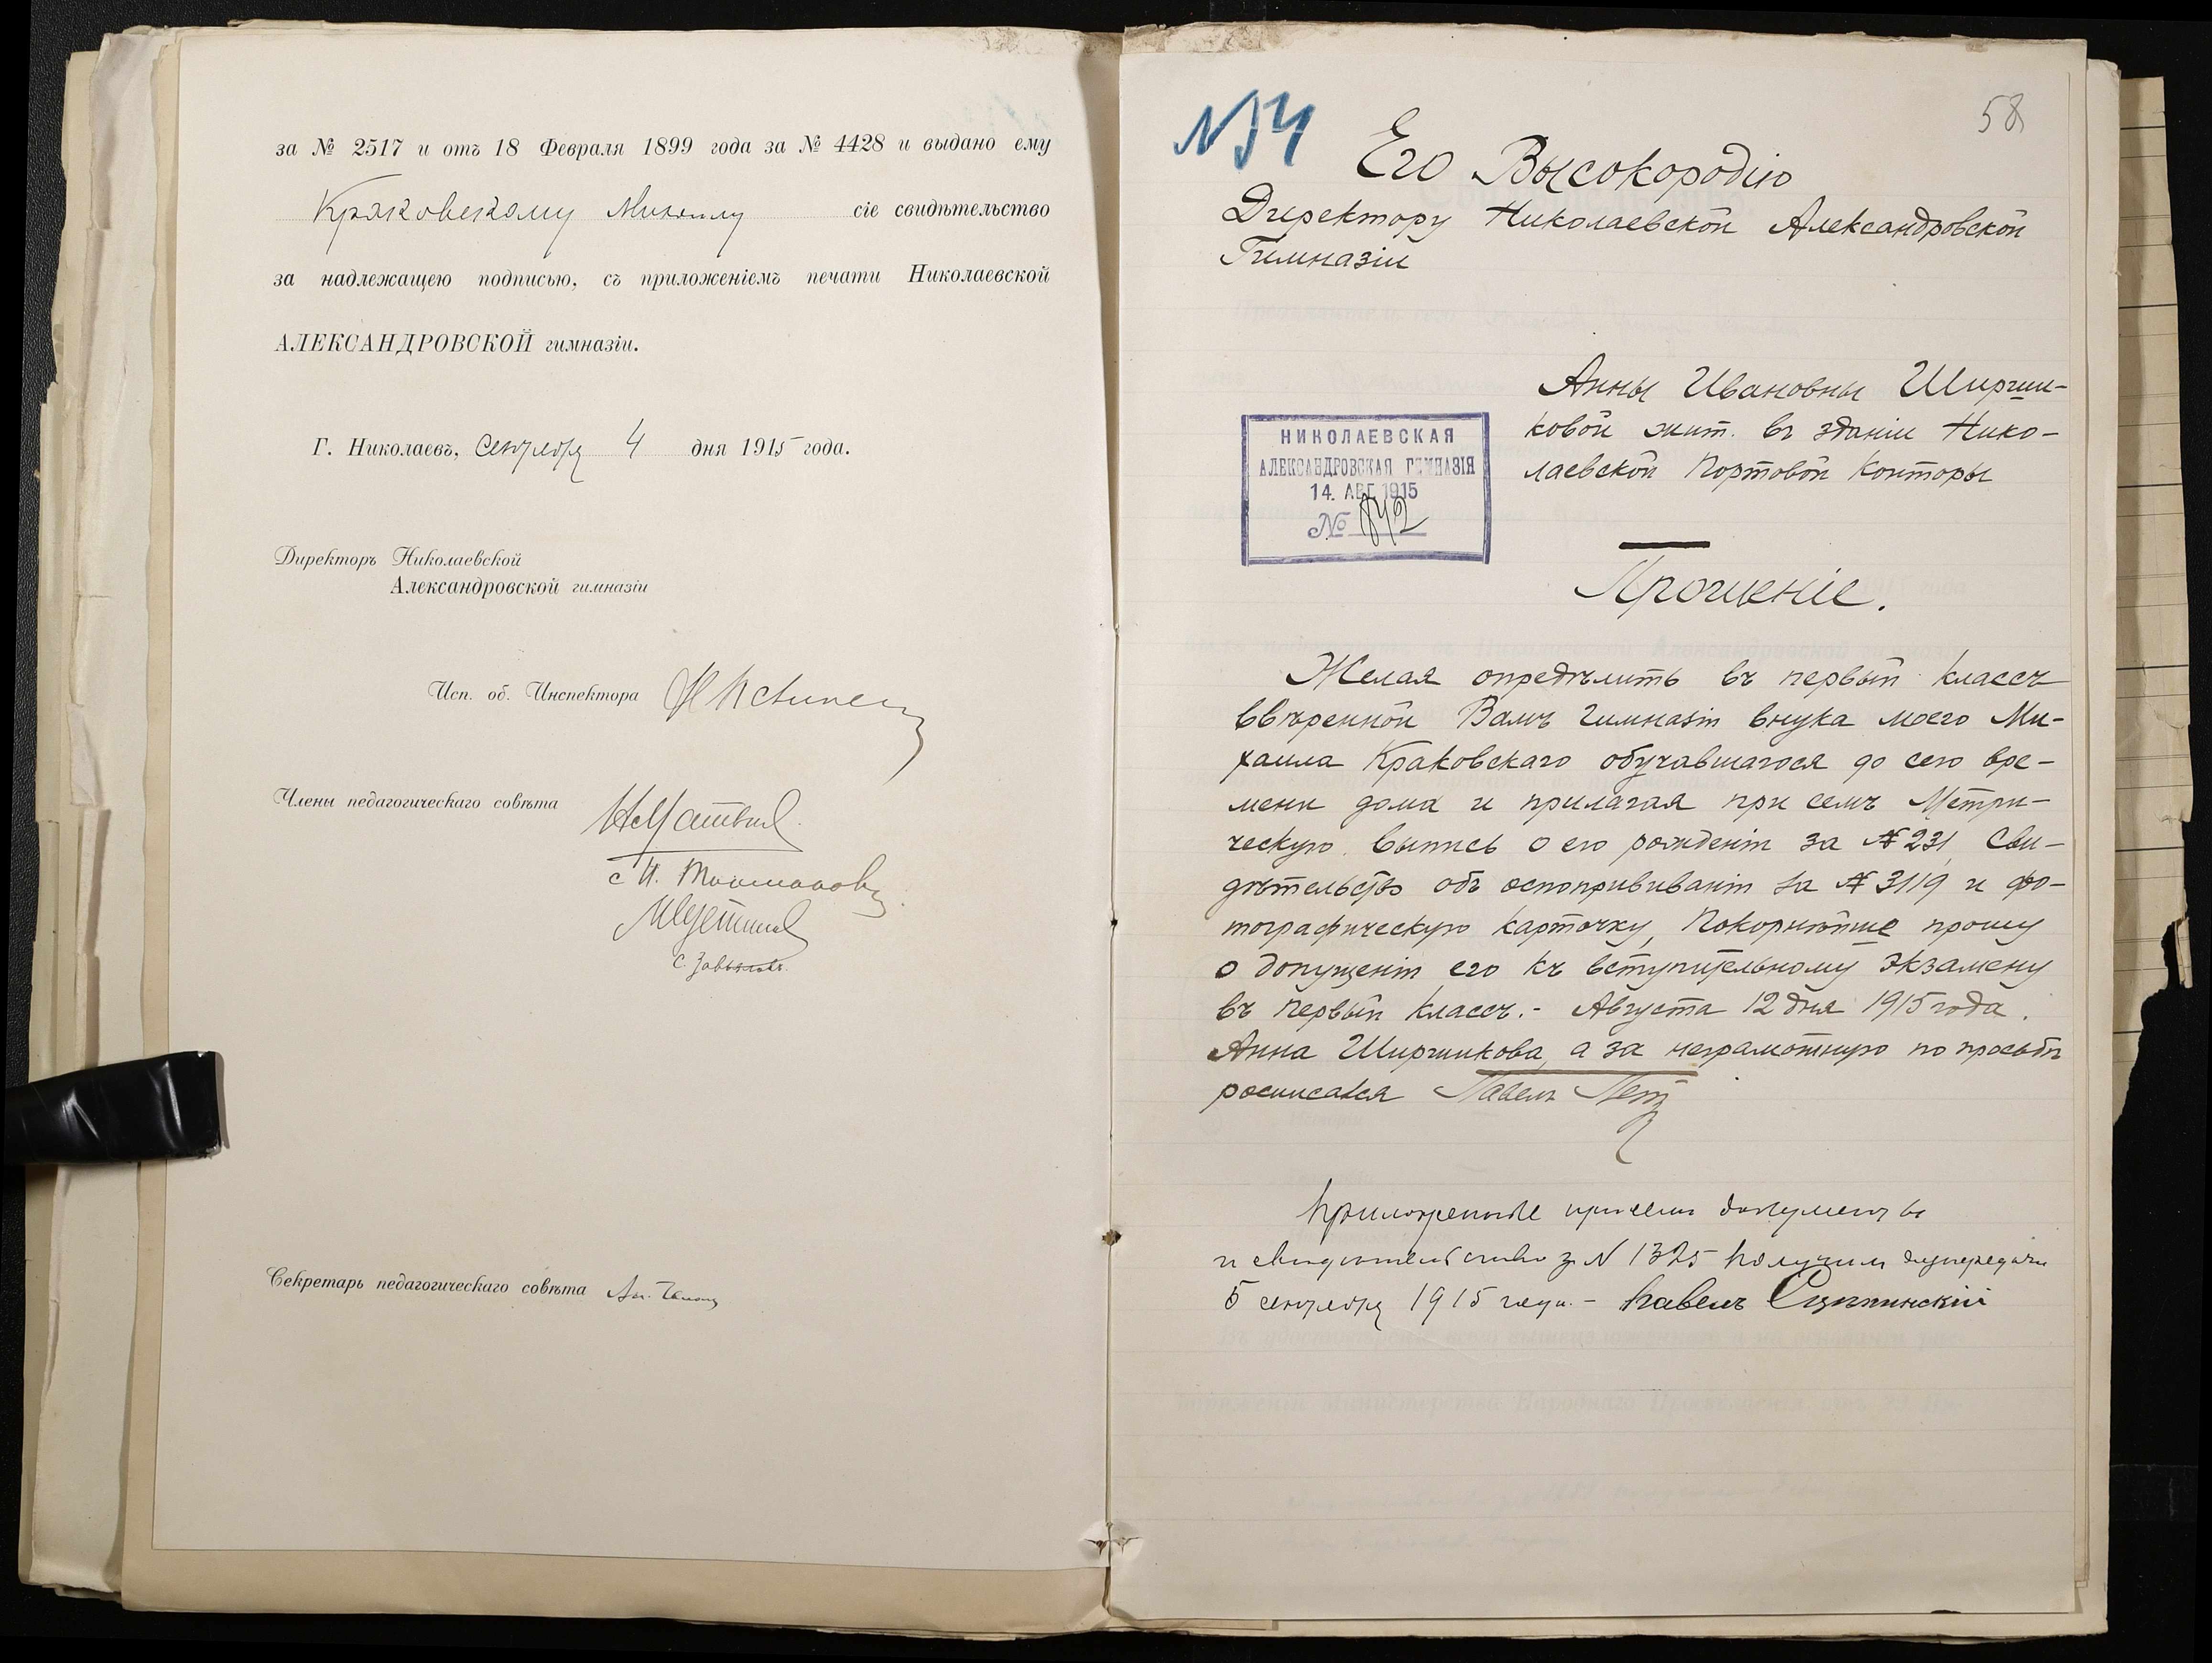 за № 2517 и отъ 18 Февраля 1899 года за № 4428 и выдано ему
Краковскому Михаилу сіе свидѣтельство
за надлежащею подписью, съ приложеніемъ печати Николаевской
АЛЕКСАНДРОВСКОЙ гимназіи.
Г. Николаевъ, Сентября 4 дня 1915 года.
Директоръ Николаевской
Александровской гимназіи
Исп. об. Инспектора
Члены педагогическаго совѣта
Секретарь педагогическаго совѣта
58
Его Высокородію
Директору Николаевской Александровской
Гимназіи
Анны Ивановны Ширши-
ковой жит. въ зданіи Нико-
лаевской Портовой Конторы
НИКОЛАЕВСКАЯ
АЛЕКСАНДРОВСКАЯ ГИМНАЗІЯ
14. АВГ 1915
№ 842
Прошеніе.
Желая опредѣлить въ первый классъ
ввѣренной Вамъ Гимназіи внука моего Ми-
хаила Краковскаго обучавшагося до сего вре-
мени дома и прилагая при семъ Метри-
ческую выпись о его рожденіи за № 231, Сви-
дѣтельство объ оспопрививаніи за № 3119 и фо-
тографическую карточку, Покорнѣйше прошу
о допущеніи его къ вступительному экзамену
въ первый классъ.- Августа 12 дня 1915 года.
Анна Ширшикова, а за неграмотную по просьбѣ
росписался Павелъ
Приложенные при семъ документы
и свидѣтельство за N 1325 получилъ для передачи
5 сентября 1915 года.- Павелъ